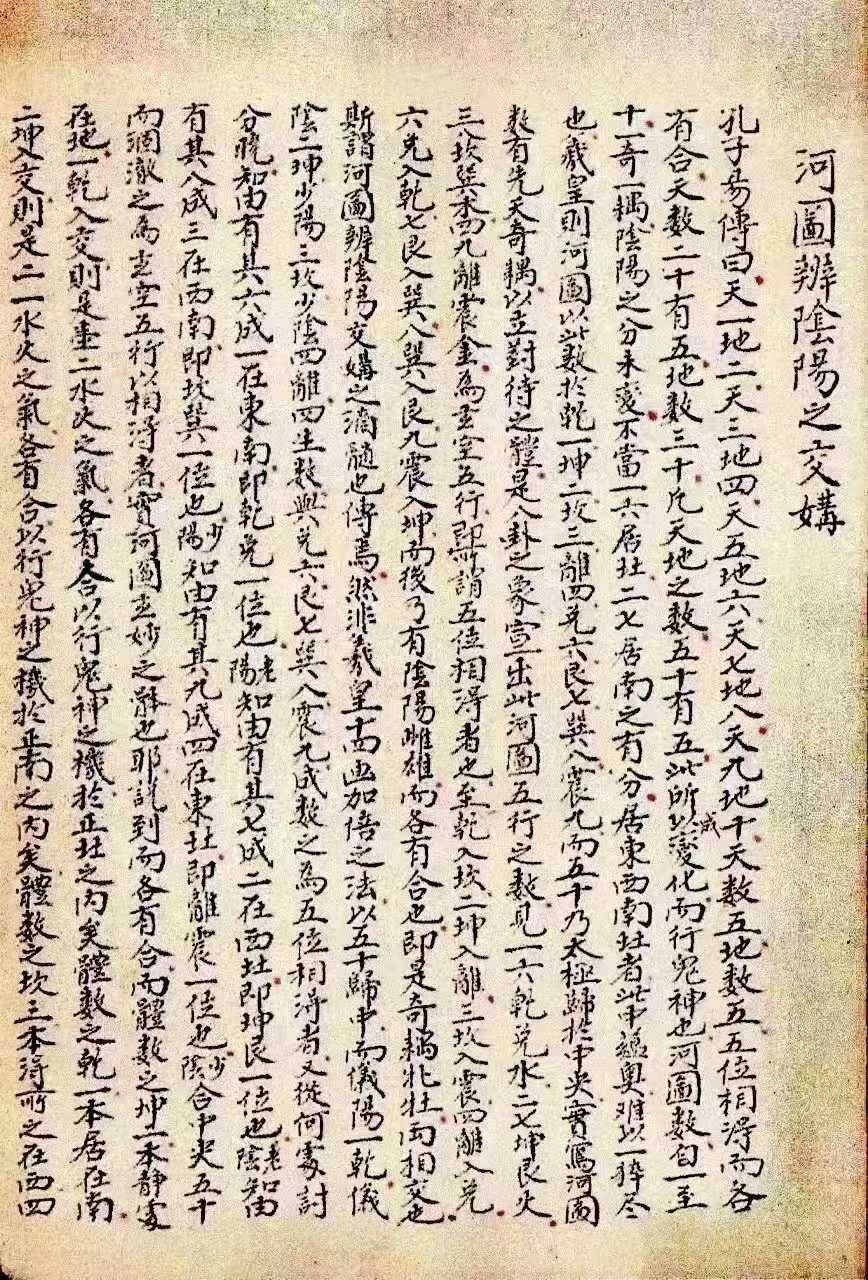 河圖辨陰陽之交媾
孔子易傳曰天一地二天三地四天五地六天七地八天九地十天数五地数五五位相淂而各
有合天数二十有五地数三十凡天地之数五十有五此所以成變化而行鬼神也河圖数自一至
十一奇一耦陰陽之分未变不當一六居北二七居南之有分居東西南北者此中藴奥难以一猝尽
也羲皇則河圖以此数於乾一坤二坎三離四兑六艮七巽八震九而五十乃太極歸於中央實寫河圖
数有先天奇耦以立對待之體是八卦之象宣出此河圖五行之数見一六乾兑水二七坤艮火
三八坎巽木四九離震金為玄空五行即所謂五位相淂者也至乾入坎二坤入離三坎入震四離入兑
六兑入乾七艮入巽八巽入艮九震入坤而後乃有陰陽雌雄而各有合也即是奇耦牝牡而相交也
斯謂河圖辨陰陽交媾之滴髓也傳焉然非羲皇十四画加倍之法以五十歸中而儀陽一乾儀
陰二坤少陽三坎少陰四離四生数與兑六艮七巽八震九成数之為五位相淂者又從何處討
分曉知由有其六成一在東南即乾兑一位也老陽知由有其七成二在西北即坤艮一位也老陰知由
有其八成三在西南即坎巽一位也少陽知由有其九成四在東北即離震一位也少陰合中央五十
而洞澈之為玄空五行以相淂者實河圖玄妙之辭也耶説到而各有合而體数之坤一本静處
在地一乾入交則是壹二水火之氣各有合以行鬼神之機於正北之内矣體数之乾一本居在南
二坤入交則是二一水火之氣各有合以行鬼神之機於正南之内矣體数之坎三本淂所之在西四